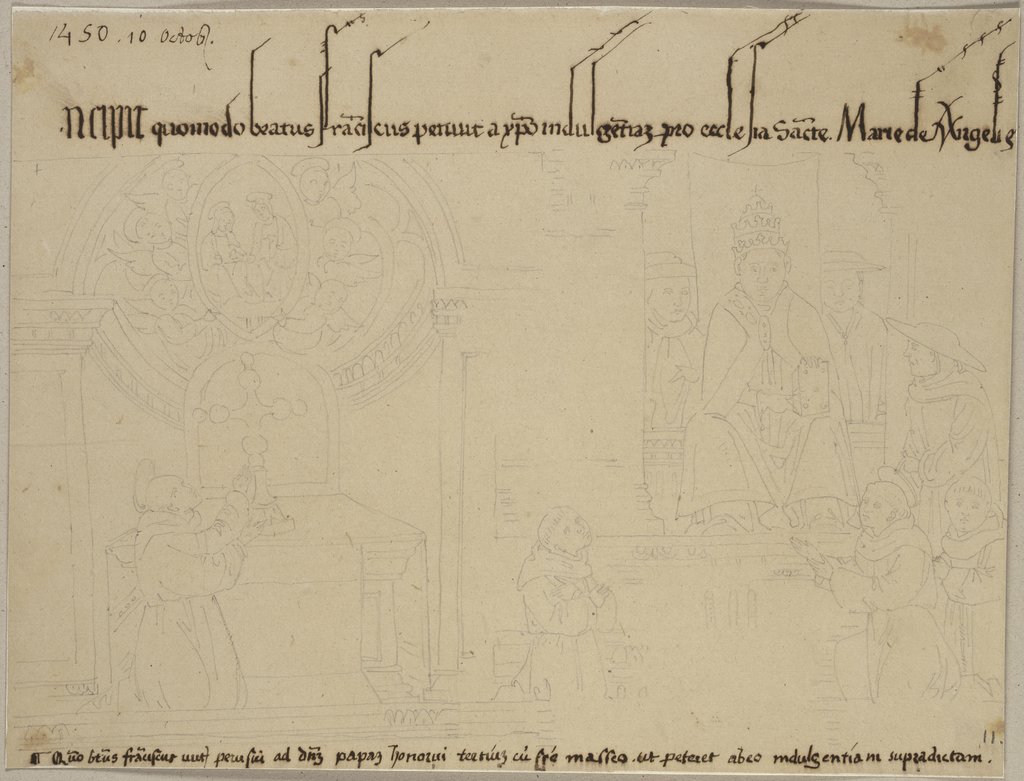 1450 . 10 Octob.
.NCIPIT quomodo beatus frāciscus petiuit a xp̄o indulgētiaz pro ecclesia Sācte. Marie de Angelis
11.
¶ Quō btūs frāciscus iuit perusiū ad dn̄z papaz honoriū tertiuz cū frē masseo. ut peteret abeo indulgentiam supradictam.